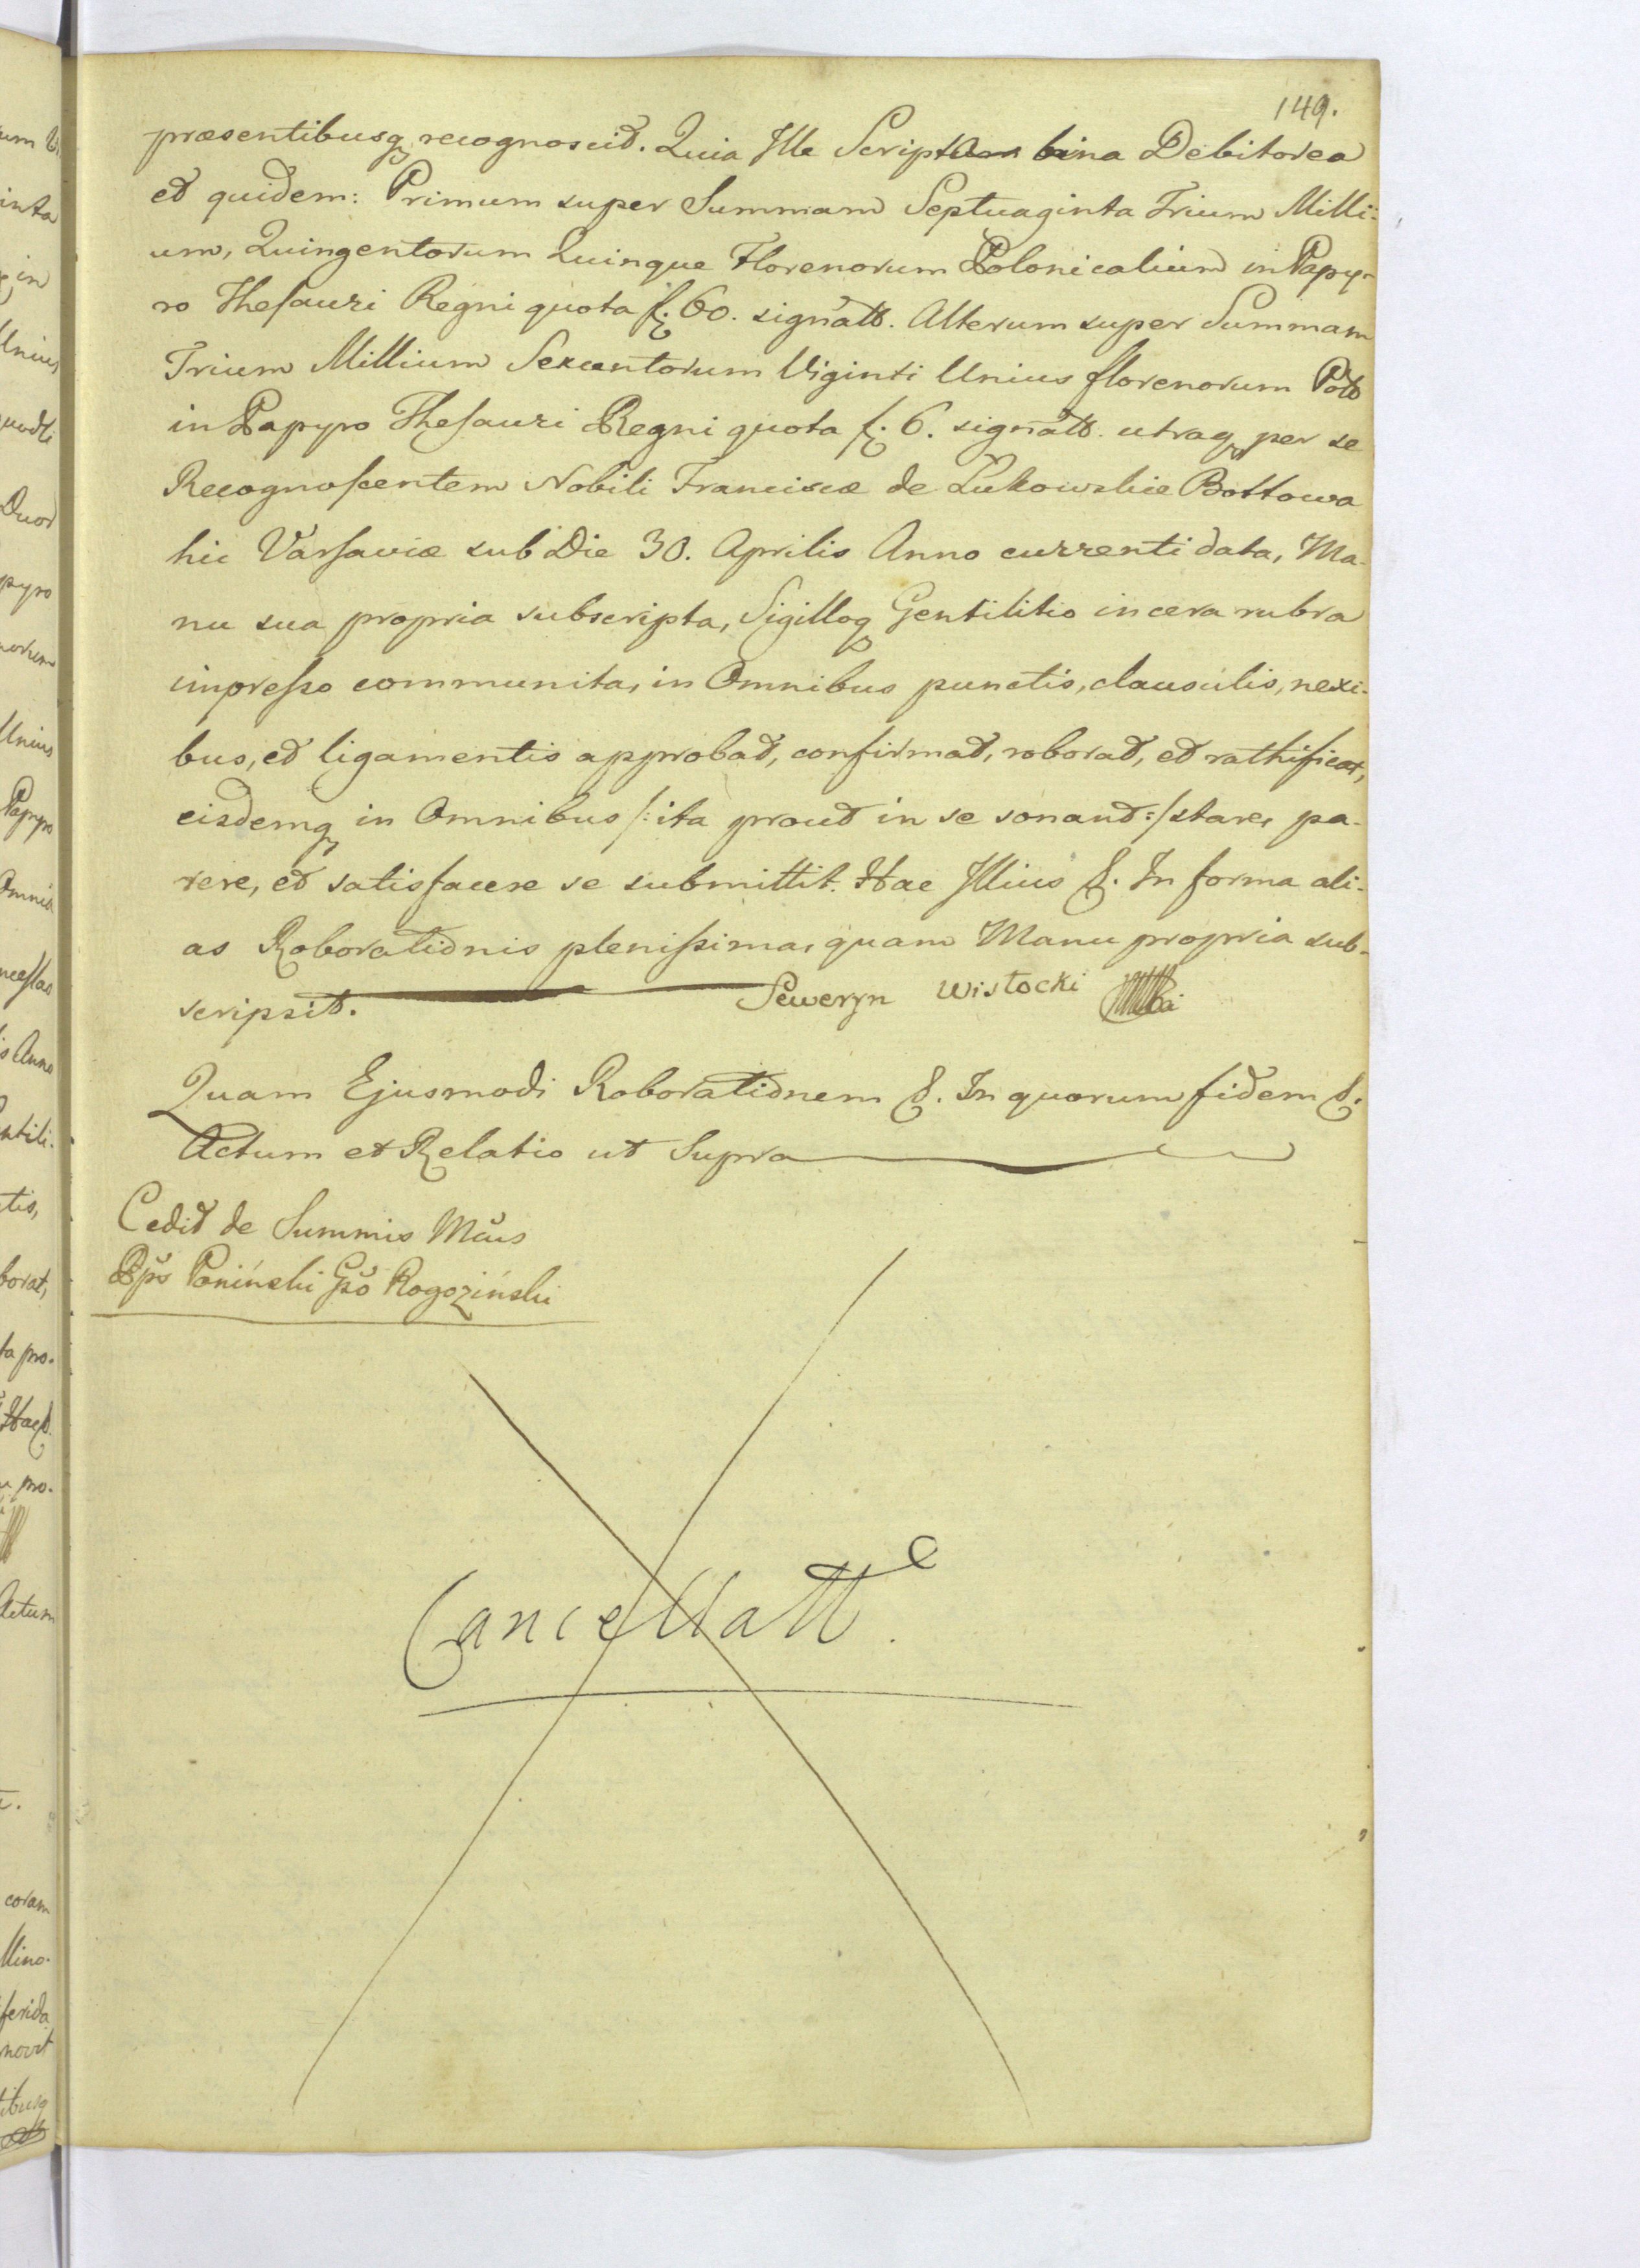 149.
præsentibusq recognoscit. Quia Ille Scripta bina Debitorea
et quidem: Primum super Summam Septuaginta Trium Milli-
um, Quingentorum Quinque Florenorum Polonicalium in Papy-
ro Thesauri Regni quota f. 60. signatt. Alterum super Summam
Trium Millium Sexcentorum Viginti Unius florenorum Poll
in Papyro Thesauri Regni quota f. 6. signatt. utraq per se
Recognoscentem Nobili Franciscæ de Łukowskie Bottowa
hic Varsaviæ sub Die 30. Aprilis Anno currenti data, Ma-
nu sua propria subscripta, Sigilloq Gentilitio in cera rubra
impresso communita, in Omnibus punctis, clausulis, nexi-
bus, et ligamentis approbat, confirmat, roborat, et rathificat,
eisdemq in Omnibus /: ita prout in se sonant :/ stare, pa-
rere, et satisfacere se submittit. Hac Illius &. In forma ali-
as Roborationis plenissima, quam Manu propria sub-
scripsit. Seweryn Wisłocki
Quam Ejusmodi Roborationem &. In quorum fidem &.
Actum et Relatio ut Supra
Cedit de Summis Mcus
Pps Poniński Gso Rogoziński
Cancellatt